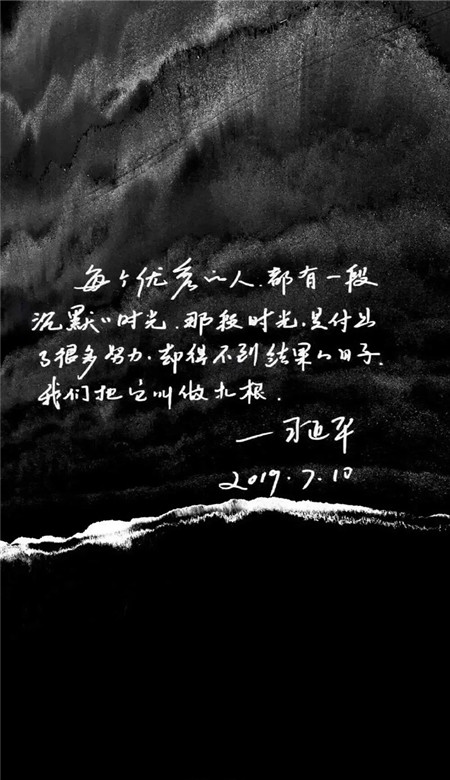 每个优秀的人，都有一段
沉默的时光．那段时光，是付出
了很多努力，却得不到结果的日子．
我们把它叫做扎根．
—习近平
2019.7.10